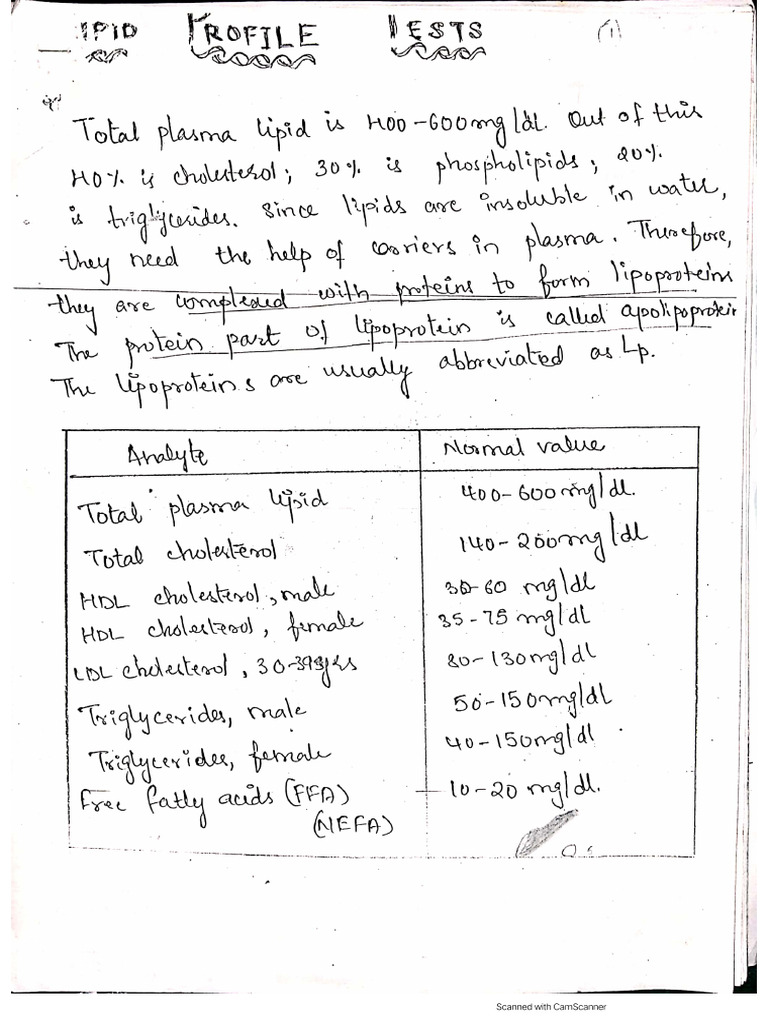 LIPID PROFILE TESTS (1)
Total plasma lipid is 400-600mg/dl. Out of this
40% is cholesterol; 30% is phospholipids; 20%
is triglycerides. Since lipids are insoluble in water,
they need the help of carriers in plasma. Therefore,
they are complexed with proteins to form lipoproteins
The protein part of lipoprotein is called apolipoprotein
The lipoproteins are usually abbreviated as Lp.
Analyte Normal value
Total plasma lipid 400-600mg/dl.
Total cholesterol 140-200mg/dl
HDL cholesterol, male 30-60 mg/dl
HDL cholesterol, female 35-75 mg/dl
LDL cholesterol, 30-39yrs 80-130mg/dl
Triglycerides, male 50-150mg/dl
Triglycerides, female 40-150mg/dl
Free fatty acids (FFA) 10-20 mg/dl.
(NEFA)
Scanned with CamScanner